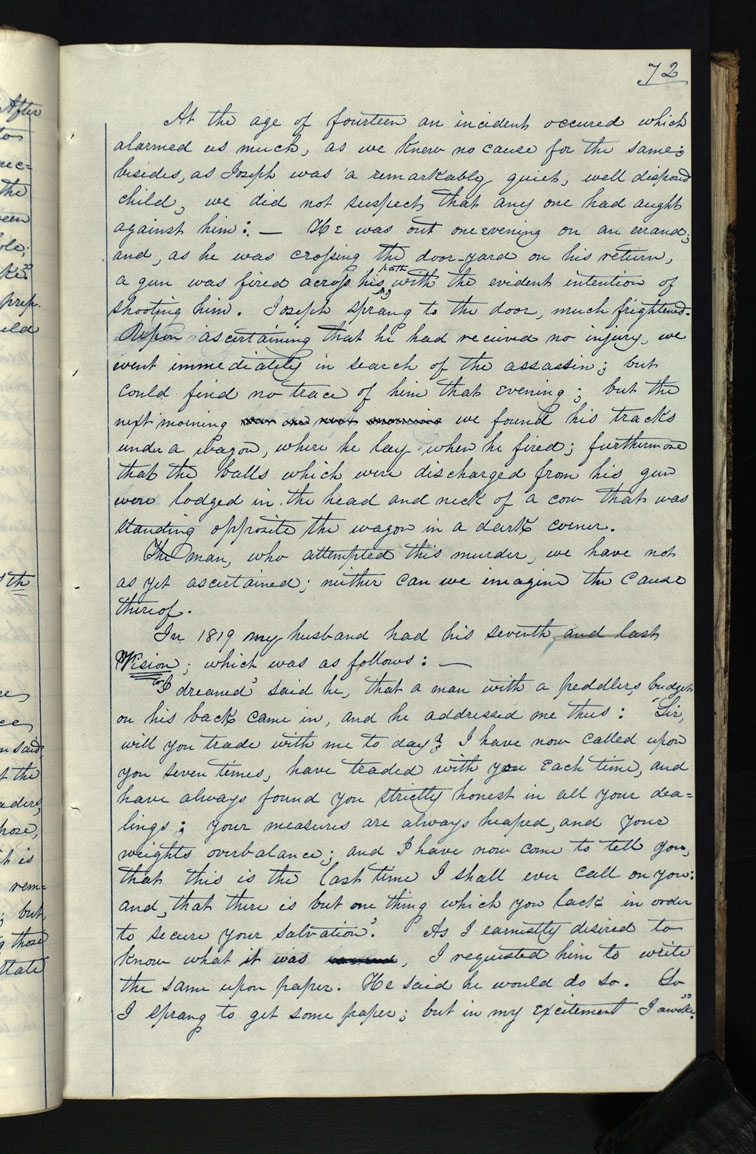 72
At the age of fourteen an incident occured which
alarmed us much, as we knew no cause for the same:
besides, as Joseph was a remarkably quiet, well disposed
child, we did not suspect that any one had aught
against him: — He was out one evening on an errand;
and, as he was crossing the door-yard on his return,
path
a gun was fired across his, with the evident intention of
shooting him. Joseph sprang to the door, much frightened.
Upon ascertaining that he had received no injury, we
went immediately in search of the assassin; but
could find no trace of him that evening; but the
next morning we found his tracks
under a wagon, where he lay when he fired; furthermore
that the balls which were discharged from his gun
were lodged in the head and neck of a cow that was
standing opposite the wagon in a dark corner.
The man, who attempted this murder, we have not
as yet ascertained; neither can we imagine the cause
thereof.
In 1819 my husband had his seventh and last
Vision; which was as follows: —
"I dreamed" said he, that a man with a peddlers budget
on his back came in, and he addressed me thus: "Sir,
will you trade with me to day? I have now called upon
you seven times, have traded with you each time, and
have always found you strictly honest in all your dea=
lings; your measures are always heaped, and your
weights overbalance; and I have now come to tell you,
that this is the last time I shall ever call on you:
and, that there is but one thing which you lack in order
to secure your salvation". As I earnestly desired to
know what it was, I requested him to write
the same upon paper. He said he would do so. So
I sprang to get some paper; but in my excitement I awoke."
After
to
the
prep
uld
th
said
t the
aders,
t is
rem=
; but
those
state